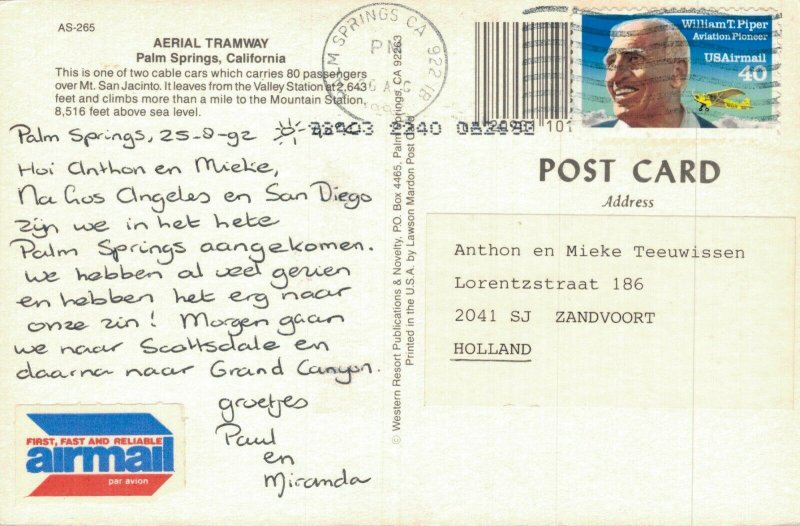 AS-265
AERIAL TRAMWAY
Palm Springs, California
This is one of two cable cars which carries 80 passengers
over Mt. San Jacinto. It leaves from the Valley Station at 2,643
feet and climbs more than a mile to the Mountain Station,
8,516 feet above sea level.
Palm Springs, 25-8-92
Hoi Anthon en Mieke,
Na Los Angeles en San Diego
zijn we in het hete
Palm Springs aangekomen.
We hebben al veel gezien
en hebben het erg naar
onze zin! Morgen gaan
we naar Scottsdale en
daarna naar Grand Canyon.
groetjes
Paul
en
Miranda
FIRST, FAST AND RELIABLE
airmail
par avion
© Western Resort Publications & Novelty, P.O. Box 4465, Palm Springs, CA 92263
Printed in the U.S.A. by Lawson Mardon Post Card
PALM SPRINGS CA 922
PM
William T. Piper
Aviation Pioneer
USAirmail
40
POST CARD
Address
Anthon en Mieke Teeuwissen
Lorentzstraat 186
2041 SJ ZANDVOORT
HOLLAND